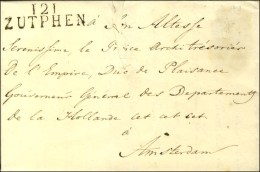 121
ZUTPHEN
à Son Altesse
Serenissime le Prince Architrésorier
de l'Empire, Duc de Plaisance
Gouverneur Général des Departements
de la Hollande et cet et cet
à
Amsterdam